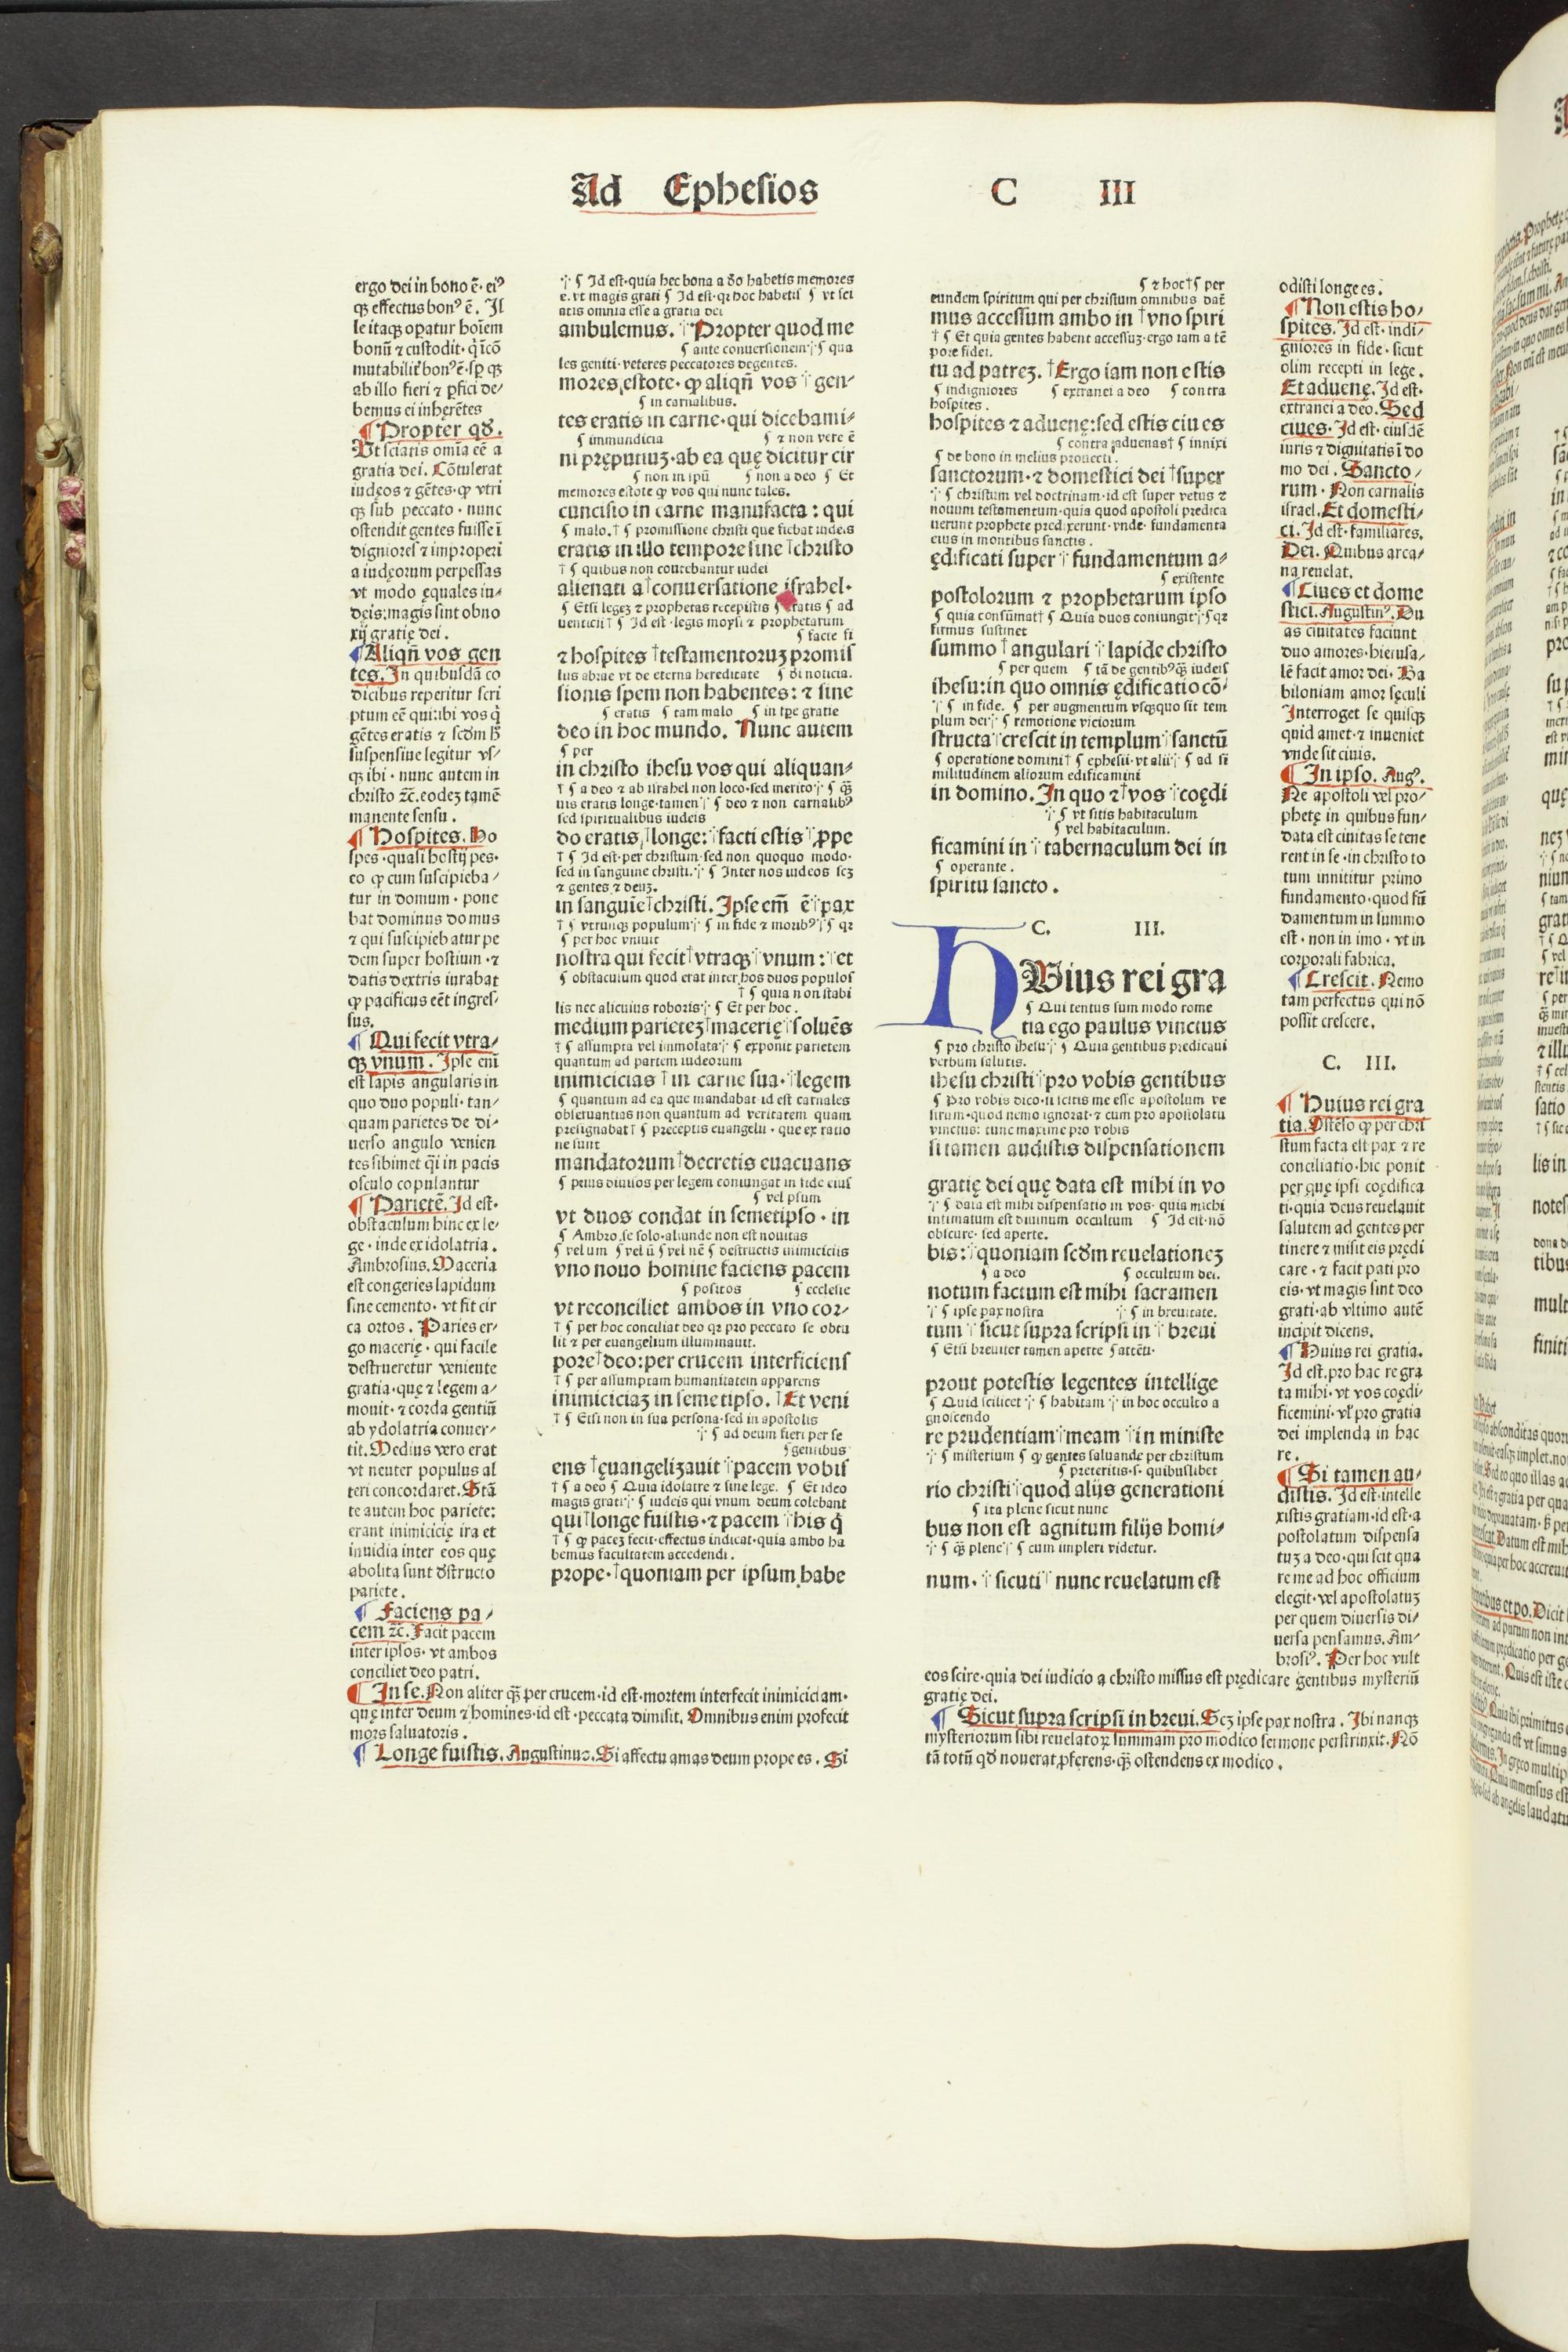 Ad Ephesios C III
ergo dei in bono ē· eiꝰ
qꝫ effectus bonꝰ ē. Il
le itaqꝫ oꝑatur hoīem
bonū ⁊ custodit· q̇ icō
ab illo fieri ⁊ ꝑfici de/
bemus ei inhęrētes
¶ Propter qð.
Ut sciatis omīa eē a
gratia dei. Cōtulerat
iudęos ⁊ gētes· ꝙ vtri
qꝫ sub peccato · nunc
ostendit gentes fuisse ī
digniores ⁊ improperi
a iudęorum perpessas
vt modo ęquales iu/
deis: magis sint obno
xij gratię dei.
¶ Aliqn̄ vos gen
tes. In quibusdā co
dicibus reperitur scri
ptum eē qui: ibi vos q̇
gētes eratis ⁊ scðm ħ
suspensiue legitur vs/
qꝫ ibi · nunc autem in
christo ⁊c̄. eodeꝫ tamē
manente sensu.
¶ Hospites. Ho
spes · quasi hostij pes·
eo ꝙ cum suscipieba/
tur in domum · pone
bat dominus domus
⁊ qui suscipiebatur pe
dem super hostium ·⁊
datis dextris iurabat
ꝙ pacificus eēt ingres/
sus.
¶ Qui fecit vtra/
qꝫ vnum. Ipse eni
est lapis angularis in
quo duo populi· tan/
quam parietes de di/
uerso angulo venien
tes sibimet q̄i in pacis
osculo copulantur
¶ Parietē. Id est·
obstaculum hinc ex le/
ge · inde ex idolatria.
Ambrosius. Maceria
est congeries lapidum
sine cemento· vt fit cir
ca ortos. Paries er/
go macerię · qui facile
destrueretur veniente
gratia· quę ⁊ legem a/
mouit · ⁊ corda gentiū
ab ydolatria conuer/
tit. Medius vero erat
vt neuter populus al
teri concordaret. Stā
te autem hoc pariete:
erant inimicicię ira et
inuidia inter eos quę
abolita sunt ðstructo
pariete.
¶ Faciens pa/
cem ⁊c̄. Facit pacem
inter ipsos· vt ambos
conciliet deo patri.
¶ In se. Non aliter qꝫ̄ per crucem· id est· mortem interfecit inimiciciam·
quę inter deum ⁊ homines· id est· peccata dimisit. Omnibus enim profecit
mors saluatoris.
¶ Longe fuistis. Augustinus. Si affectu amas deum prope es. Si
⁖ ¶ Id est· quia hec bona a ðo habetis memores
e. vt magis grati ¶ Id est· qꝛ hoc habetis ¶ vt sci
atis omnia esse a gratia dei
ambulemus. ⁖Propter quod me
¶ ante conuersionem⁖ ¶ qua
les geniti· veteres peccatores degentes.
mores estote· ꝙ aliqn̄ vos ⁖ gen/
¶ in carnalibus.
tes eratis in carne· qui dicebami/
¶ immundicia ¶ ⁊ non vere ē
ni pręputiuꝫ· ab ea quę dicitur cir
¶ non in ipū ¶ non a deo ¶ Et
memores estote ꝙ vos qui nunc tales.
cuncisio in carne manufacta: qui
¶ malo.† ¶ promissione christi que fiebat iudeis
eratis in illo tempore sine †christo
† ¶ quibus non coutebantur iudei
alienati a†conuersatione israhel·
¶ Etsi legeꝫ ⁊ prophetas recepistis ¶ ratis ¶ ad
uenticii† ¶ Id est· legis moysi ⁊ prophetarum
¶ facte fi
⁊ hospites †testamentoruꝫ promis
lius abrae vt de eterna hereditate ¶ ði noticia.
sionis spem non habentes: ⁊ sine
¶ eratis ¶ tam malo ¶ in tꝑe gratie
deo in hoc mundo. Nunc autem
¶ per
in christo ihesu vos qui aliquan/
† ¶ a deo ⁊ ab israhel non loco· sed merito⁖ ¶ qꝫ̄
uis eratis longe· tamen⁖ ¶ deo ⁊ non carnalibꝰ
sed spiritualibus iudeis
do eratis †longe: ⁖facti estis ⁖ꝓpe
† ¶ Id est· per christum· sed non quoquo modo·
sed in sanguine christi. ⁖ ¶ Inter nos iudeos scꝫ
⁊ gentes ⁊ deuꝫ.
in sanguīe†christi. Ipse em̄ ē⁖pax
† ¶ vtrunqꝫ populum⁖ ¶ in fide ⁊ moribꝰ⁖ ¶ qꝛ
¶ per hoc vniuit
nostra qui fecit†vtraqꝫ⁖vnum:⁖et
¶ obstaculum quod erat inter hos duos populos
† ¶ quia non stabi
lis nec alicuius roboris⁖ ¶ Et per hoc.
medium parieteꝫ†macerię⁖soluēs
† ¶ assumpta vel immolata⁖ ¶ exponit parietem
quantum ad partem iudeorum
inimicicias †in carne sua·⁖legem
¶ quantum ad ea que mandabat· id est carnales
obseruantias non quantum ad veritatem quam
presignabat† ¶ preceptis euangelii · que ex ratio
ne sunt
mandatorum†decretis euacuans
¶ prius diuisos per legem coniungat in fide eius
¶ vel ipsum
vt duos condat in semetipso · in
¶ Ambro. se solo· aliunde non est nouitas
¶ vel um ¶ vel ū ¶ vel nē ¶ destructis inimiciciis
vno nouo homine faciens pacem
¶ positos ¶ ecclesie
vt reconciliet ambos in vno cor/
† ¶ per hoc conciliat deo qꝛ pro peccato se obtu
lit ⁊ per euangelium illuminauit.
pore†deo: per crucem interficiens
† ¶ per assumptam humanitatem apparens
inimiciciaꝫ in semetipso. †Et veni
† ¶ Etsi non in sua persona· sed in apostolis
⁖ ¶ ad deum fieri per se
¶ gentibus
ens †ęuangelizauit ⁖pacem vobis
† ¶ a deo ¶ Quia idolatre ⁊ sine lege. ¶ Et ideo
magis grati⁖ ¶ iudeis qui vnum deum colebant
qui†longe fuistis·⁊ pacem ⁖his q̇
† ¶ ꝙ paceꝫ fecit· effectus indicat· quia ambo ha
bemus facultatem accedendi.
prope·†quoniam per ipsum habe
¶ ⁊ hoc† ¶ per
eundem spiritum qui per christum omnibus datē
mus accessum ambo in †vno spiri
† ¶ Et quia gentes habent accessuꝫ· ergo iam a tē
pore fidei.
tu ad patreꝫ. †Ergo iam non estis
¶ indigniores ¶ extranei a deo ¶ contra
hospites.
hospites ⁊ aduenę: sed estis ciues
¶ contra aduenas† ¶ innixi
¶ de bono in melius prouecti.
sanctorum·⁊ domestici dei †super
⁖ ¶ christum vel doctrinam· id est super vetus ⁊
nouum testamentum· quia quod apostoli predica
uerunt prophete predixerunt· vnde· fundamenta
eius in montibus sanctis.
ędificati super⁖fundamentum a/
¶ existente
postolorum ⁊ prophetarum ipso
¶ quia consūmat† ¶ Quia duos coniungit⁖ ¶ qꝛ
firmus sustinet
summo †angulari ⁖lapide christo
¶ per quem ¶ tā de gentibꝰ qꝫ̄ iudeis
ihesu: in quo omnis ędificatio cō/
⁖ ¶ in fide. ¶ per augmentum vsqꝫquo sit tem
plum dei⁖ ¶ remotione viciorum
structa⁖crescit in templum⁖sanctū
¶ operatione domini† ¶ ephesii· vt alii⁖ ¶ ad si
militudinem aliorum edificamini
in domino. In quo ⁊†vos⁖coędi
⁖ ¶ vt sitis habitaculum
¶ vel habitaculum.
ficamini in⁖tabernaculum dei in
¶ operante.
spiritu sancto.
C. III.
HUius rei gra
¶ Qui tentus sum modo rome
tia ego paulus vinctus
¶ pro christo ihesu⁖ ¶ Quia gentibus predicaui
verbum salutis.
ihesu christi⁖pro vobis gentibus
¶ Pro vobis dico· si scitis me esse apostolum ve
strum· quod nemo ignorat·⁊ cum pro apostolatu
vinctus: tunc maxime pro vobis
si tamen audistis dispensationem
gratię dei quę data est mihi in vo
⁖ ¶ data est mihi dispensatio in vos· quia michi
intimatum est diuinum occultum ¶ Id est· nō
obscure· sed aperte.
bis:⁖quoniam scðm reuelationeꝫ
¶ a deo ¶ occultum dei.
notum factum est mihi sacramen
⁖ ¶ ipse pax nostra ⁖ ¶ in breuitate.
tum⁖sicut supra scripsi in⁖breui
¶ Etsi breuiter tamen aperte ¶ attēti·
prout potestis legentes intellige
¶ Quid scilicet⁖ ¶ habitam⁖in hoc occulto a
gnoscendo
re prudentiam⁖meam⁖in ministe
⁖ ¶ misterium ¶ ꝙ gentes saluande per christum
¶ preteritis· s· quibuslibet
rio christi⁖quod alijs generationi
¶ ita plene sicut nunc
bus non est agnitum filijs homi/
⁖ ¶ qꝫ̄ plene⁖ ¶ cum impleri videtur.
num·⁖sicuti⁖nunc reuelatum est
odisti longe es.
¶ Non estis ho/
spites. Id est· indi/
gniores in fide· sicut
olim recepti in lege.
Et aduenę. Id est·
extranei a deo. Sed
ciues. Id est· eiusdē
iuris ⁊ dignitatis ī do
mo dei. Sancto/
rum· Non carnalis
israel. Et domesti/
ci. Id est· familiares.
Dei. Quibus arca/
na reuelat.
¶ Ciues et dome
stici. Augustinꝰ. Du
as ciuitates faciunt
duo amores· hierusa/
lē facit amor dei. Ba
biloniam amor sęculi
Interroget se quisqꝫ
quid amet· ⁊ inueniet
vnde sit ciuis.
¶ In ipso. Augꝰ.
Ne apostoli vel pro/
phetę in quibus fun/
data est ciuitas se tene
rent in se· in christo to
tum innititur primo
fundamento· quod fū
damentum in summo
est· non in imo· vt in
corporali fabrica.
¶ Crescit. Nemo
tam perfectus qui nō
possit crescere.
C. III.
¶ Huius rei gra
tia. Ostēso ꝙ per chri
stum facta est pax ⁊ re
conciliatio· hic ponit
per quę ipsi coędifica
ti· quia deus reuelauit
salutem ad gentes per
tinere ⁊ misit eis prędi
care· ⁊ facit pati pro
eis· vt magis sint deo
grati· ab vltimo autē
incipit dicens.
¶ Huius rei gratia.
Id est. pro hac re gra
ta mihi· vt vos coędi/
ficemini· vł pro gratia
dei implenda in hac
re.
¶ Si tamen au/
distis. Id est· intelle
xistis gratiam· id est· a
postolatum dispensa
tuꝫ a deo· qui scit qua
re me ad hoc officium
elegit· vel apostolatuꝫ
per quem diuersis di/
uersa pensamus. Am/
brosiꝰ. Per hoc vult
eos scire· quia dei iudicio a christo missus est prędicare gentibus mysteriū
gratię dei.
¶ Sicut supra scripsi in breui. Scꝫ ipse pax nostra. Ibi nanqꝫ
mysteriorum sibi reuelatoꝝ summam pro modico sermone perstrinxit. Nō
tā totū qð nouerat ꝓferens· qꝫ̄ ostendens ex modico.